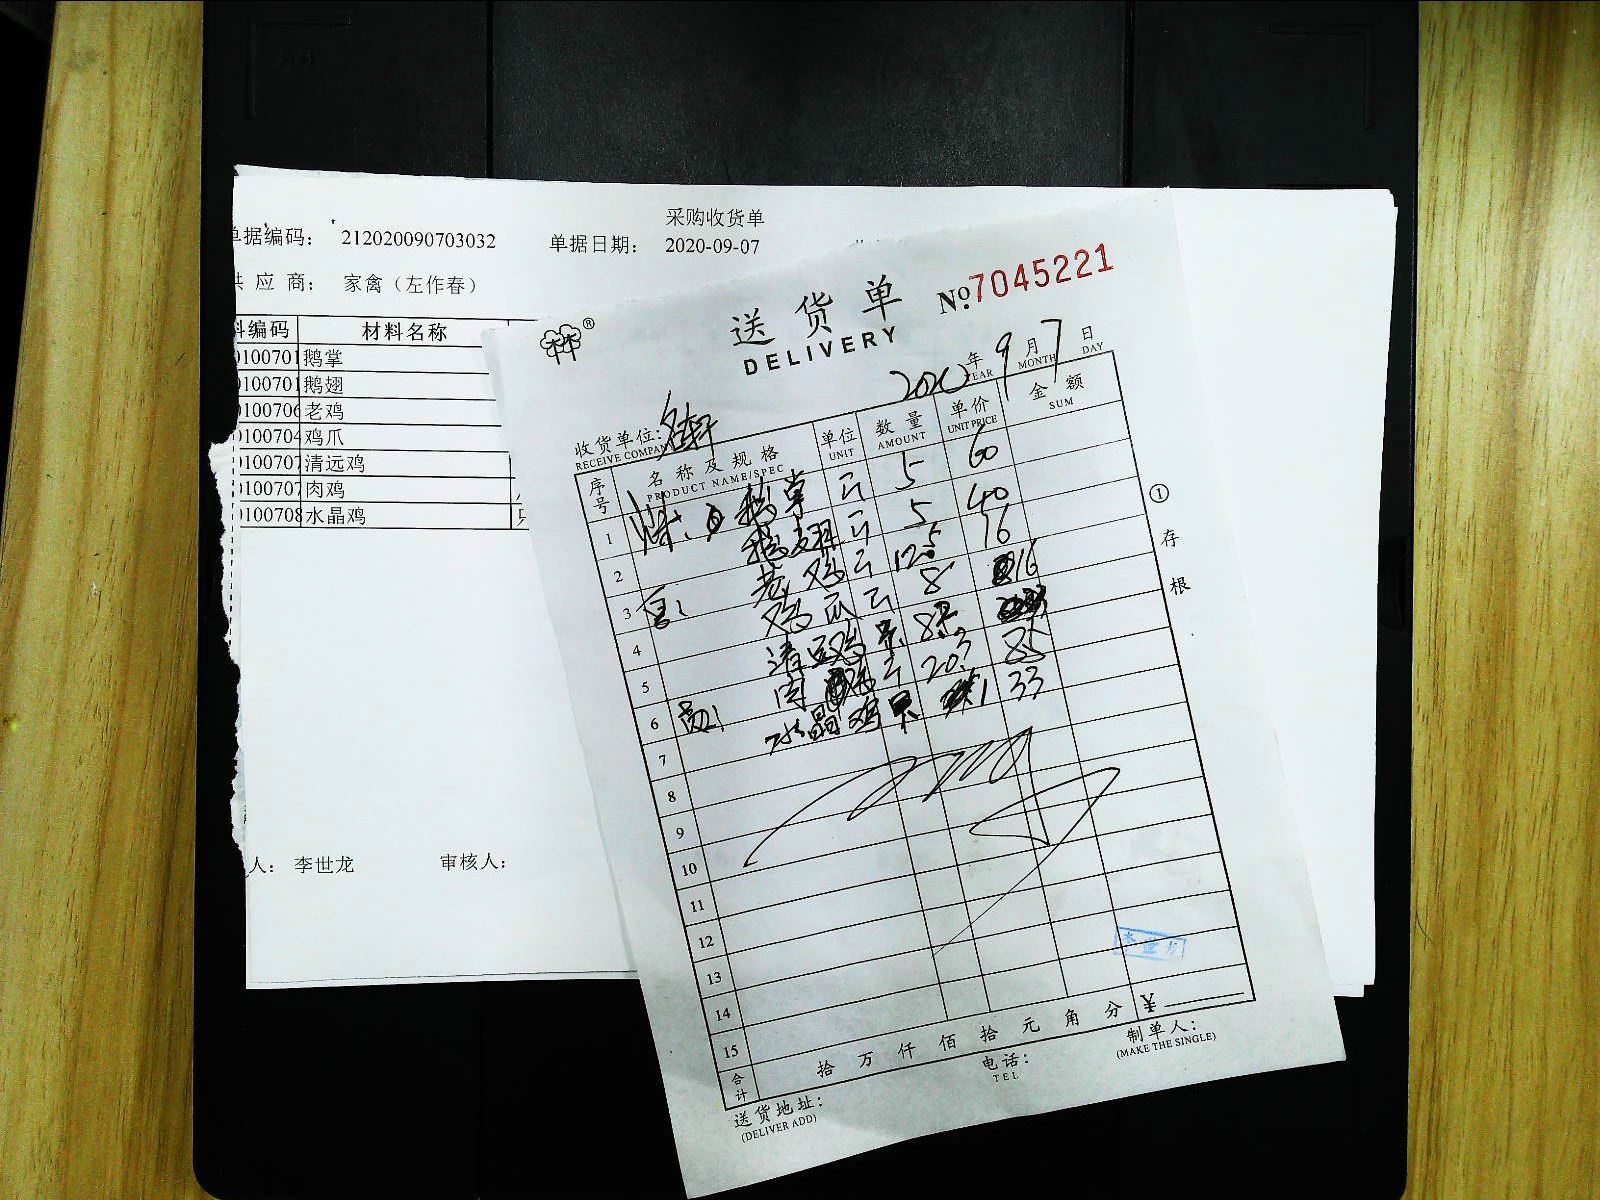 采购收货单
单据编码： 212020090703032 单据日期： 2020-09-07
供 应 商： 家禽（左作春）
料编码 材料名称
0100701 鹅掌
0100701 鹅翅
0100706 老鸡
0100704 鸡爪
0100707 清远鸡
0100707 肉鸡
0100708 水晶鸡
人： 李世龙 审核人：
®
送货单 №7045221
DELIVERY
2020 年 9 月 7 日
YEAR MONTH DAY
收货单位：
RECEIVE COMPANY
序号 名称及规格 单位 数量 单价 金额
PRODUCT NAME/SPEC UNIT AMOUNT UNIT PRICE SUM
1 鹅掌 斤 5 60
2 鹅翅 斤 5 40
3 老鸡 斤 12.5 16
4 鸡爪 斤 8 16
5 清远鸡
6 肉鸡 斤 20.2 8.5
7 水晶鸡 1 33
8
9
10
11
12
13
14
15
合计 拾 万 仟 佰 拾 元 角 分 ¥
送货地址： 电话： 制单人：
(DELIVER ADD) TEL (MAKE THE SINGLE)
① 存根
李世龙